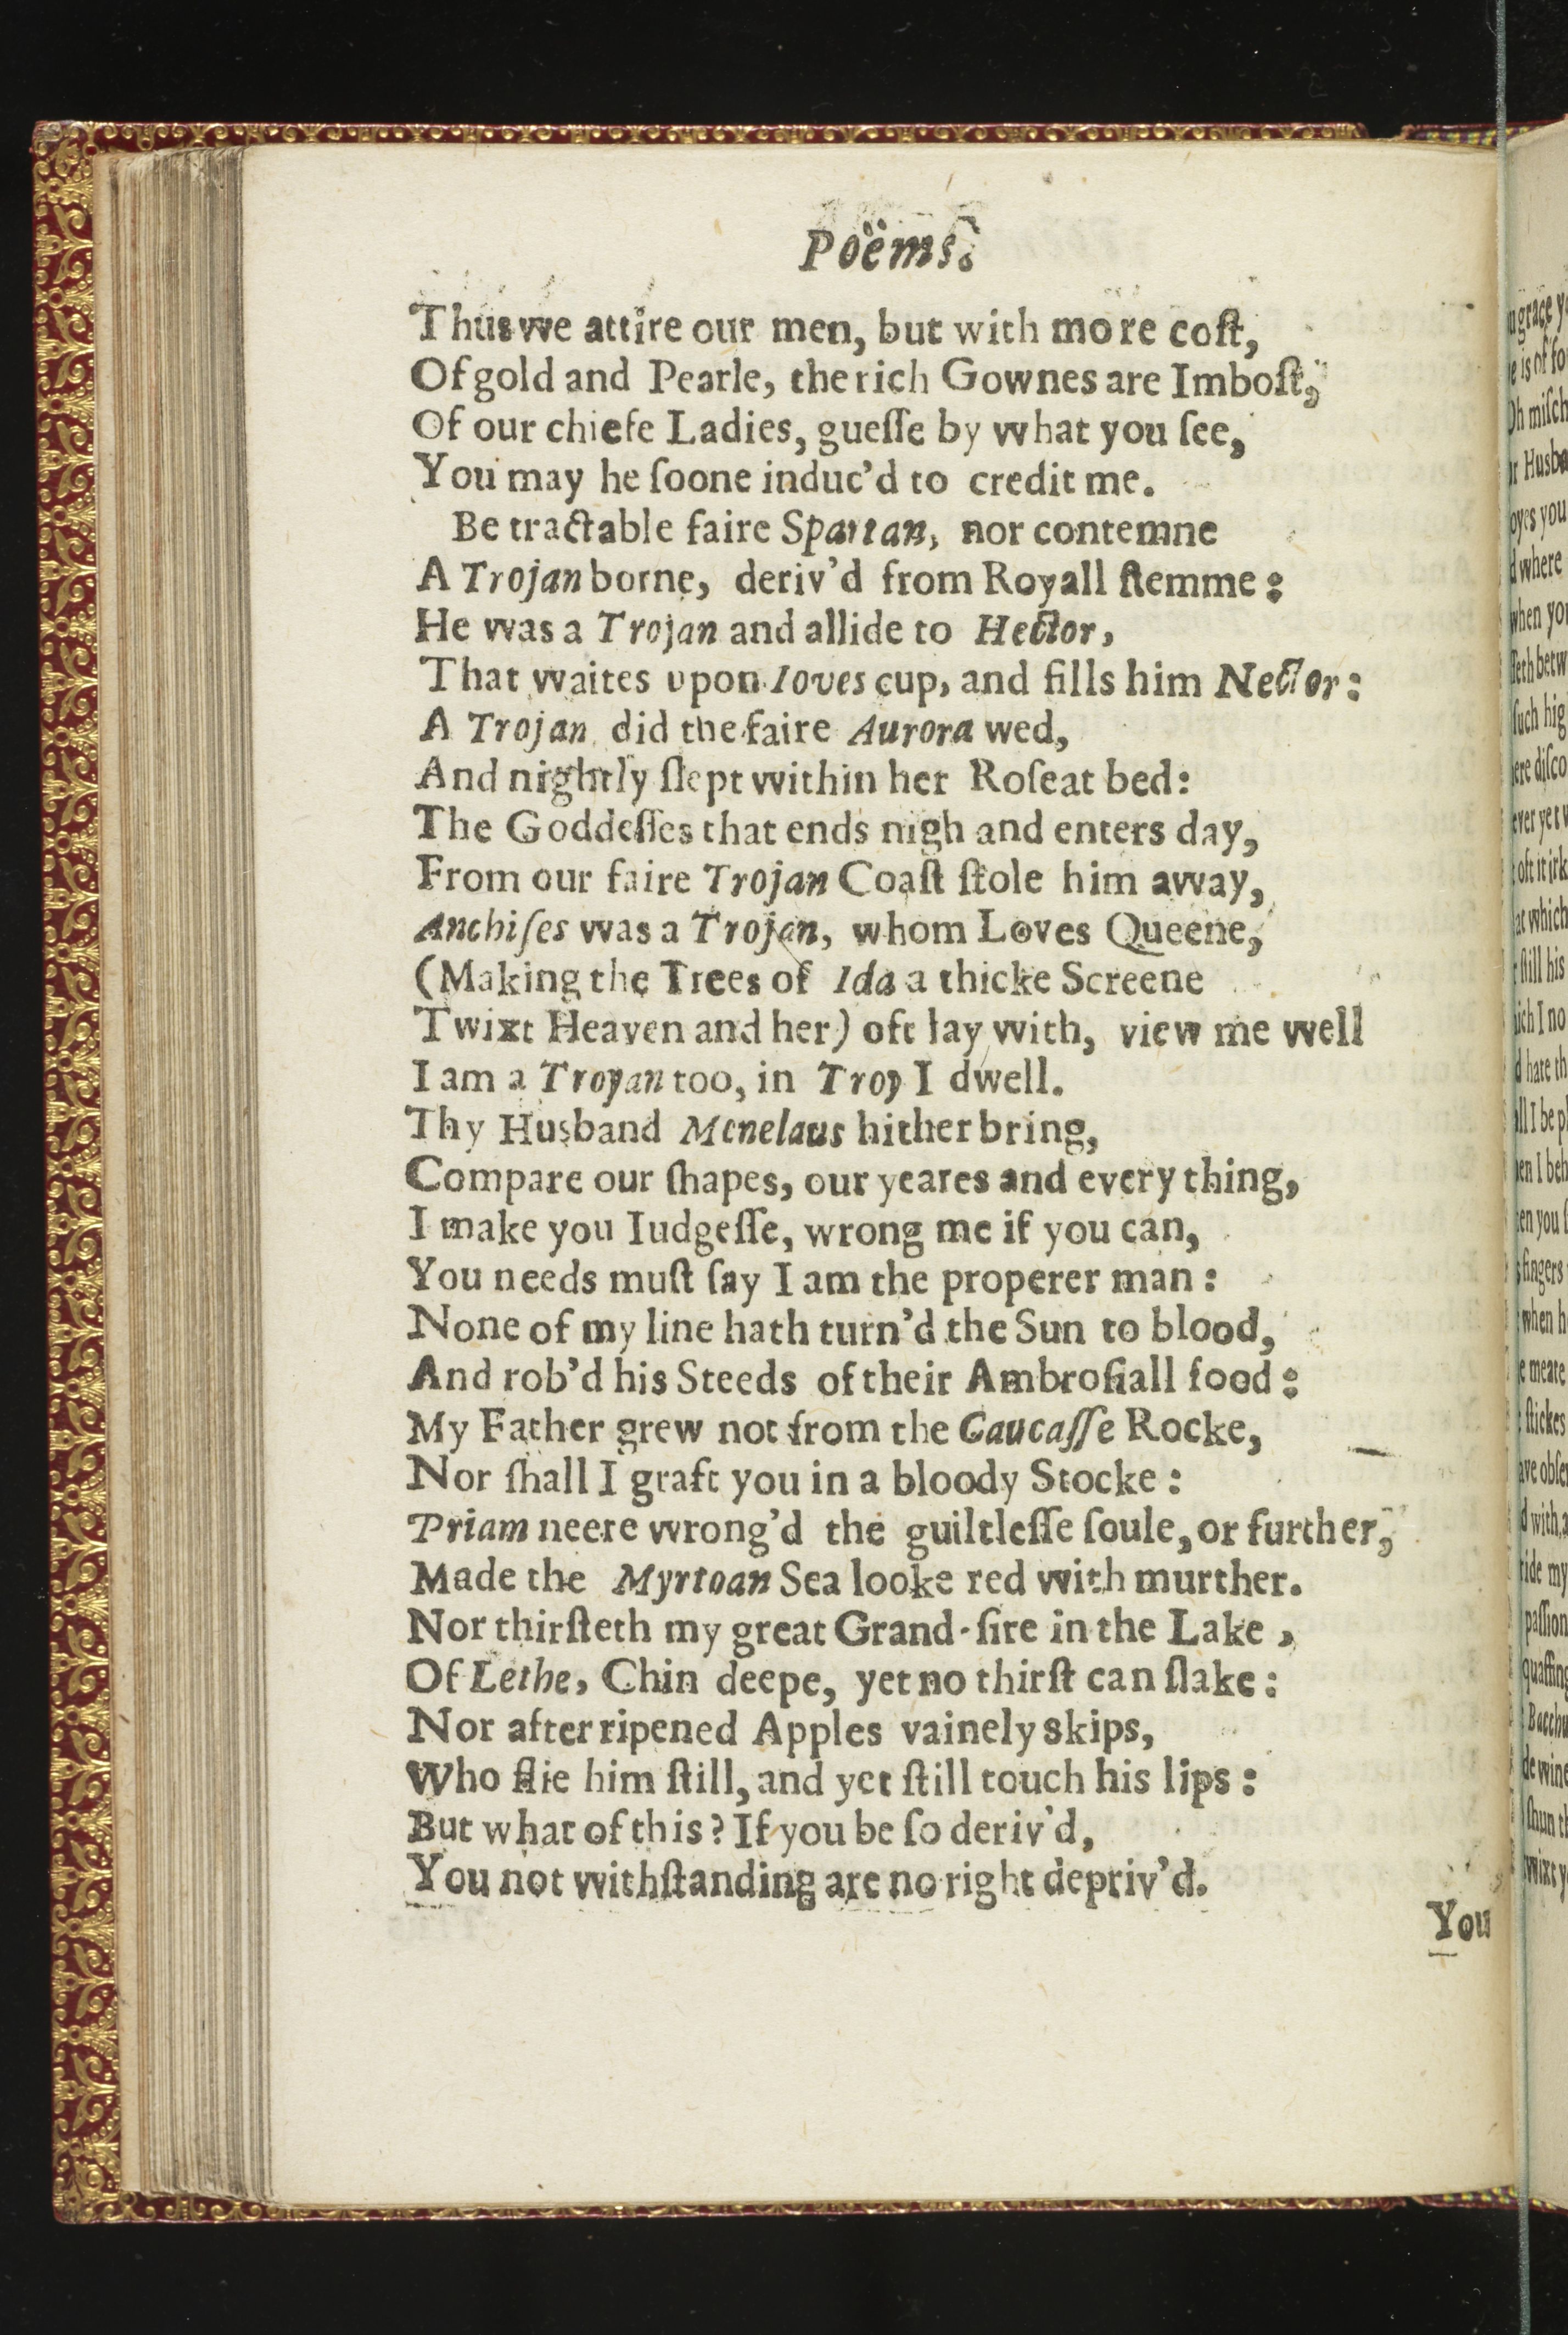 Poëms.
Thus we attire our men, but with more coſt,
Of gold and Pearle, the rich Gownes are Imboſt,
Of our chiefe Ladies, gueſſe by what you ſee,
You may he ſoone induc'd to credit me.
Be tractable faire Spartan, nor contemne
A Trojan borne, deriv'd from Royall ſtemme:
He was a Trojan and allide to Hector,
That waites upon Ioves cup, and fills him Nector:
A Trojan did the faire Aurora wed,
And nightly ſlept within her Roſeat bed:
The Goddeſſes that ends nigh and enters day,
From our faire Trojan Coaſt ſtole him away,
Anchiſes was a Trojan, whom Loves Queene,
(Making the Trees of Ida a thicke Screene
Twixt Heaven and her) oft lay with, view me well
I am a Troyan too, in Troy I dwell.
Thy Husband Menelaus hither bring,
Compare our ſhapes, our yeares and every thing,
I make you Iudgeſſe, wrong me if you can,
You needs muſt ſay I am the properer man:
None of my line hath turn'd the Sun to blood,
And rob'd his Steeds of their Ambroſiall food:
My Father grew not from the Caucaſſe Rocke,
Nor ſhall I graft you in a bloody Stocke:
Priam neere wrong'd the guiltleſſe ſoule, or further,
Made the Myrtoan Sea looke red with murther.
Nor thirſteth my great Grand-ſire in the Lake,
Of Lethe, Chin deepe, yet no thirſt can ſlake:
Nor after ripened Apples vainely skips,
Who flie him ſtill, and yet ſtill touch his lips:
But what of this? If you be ſo deriv'd,
You not withſtanding are no right depriv'd.
You